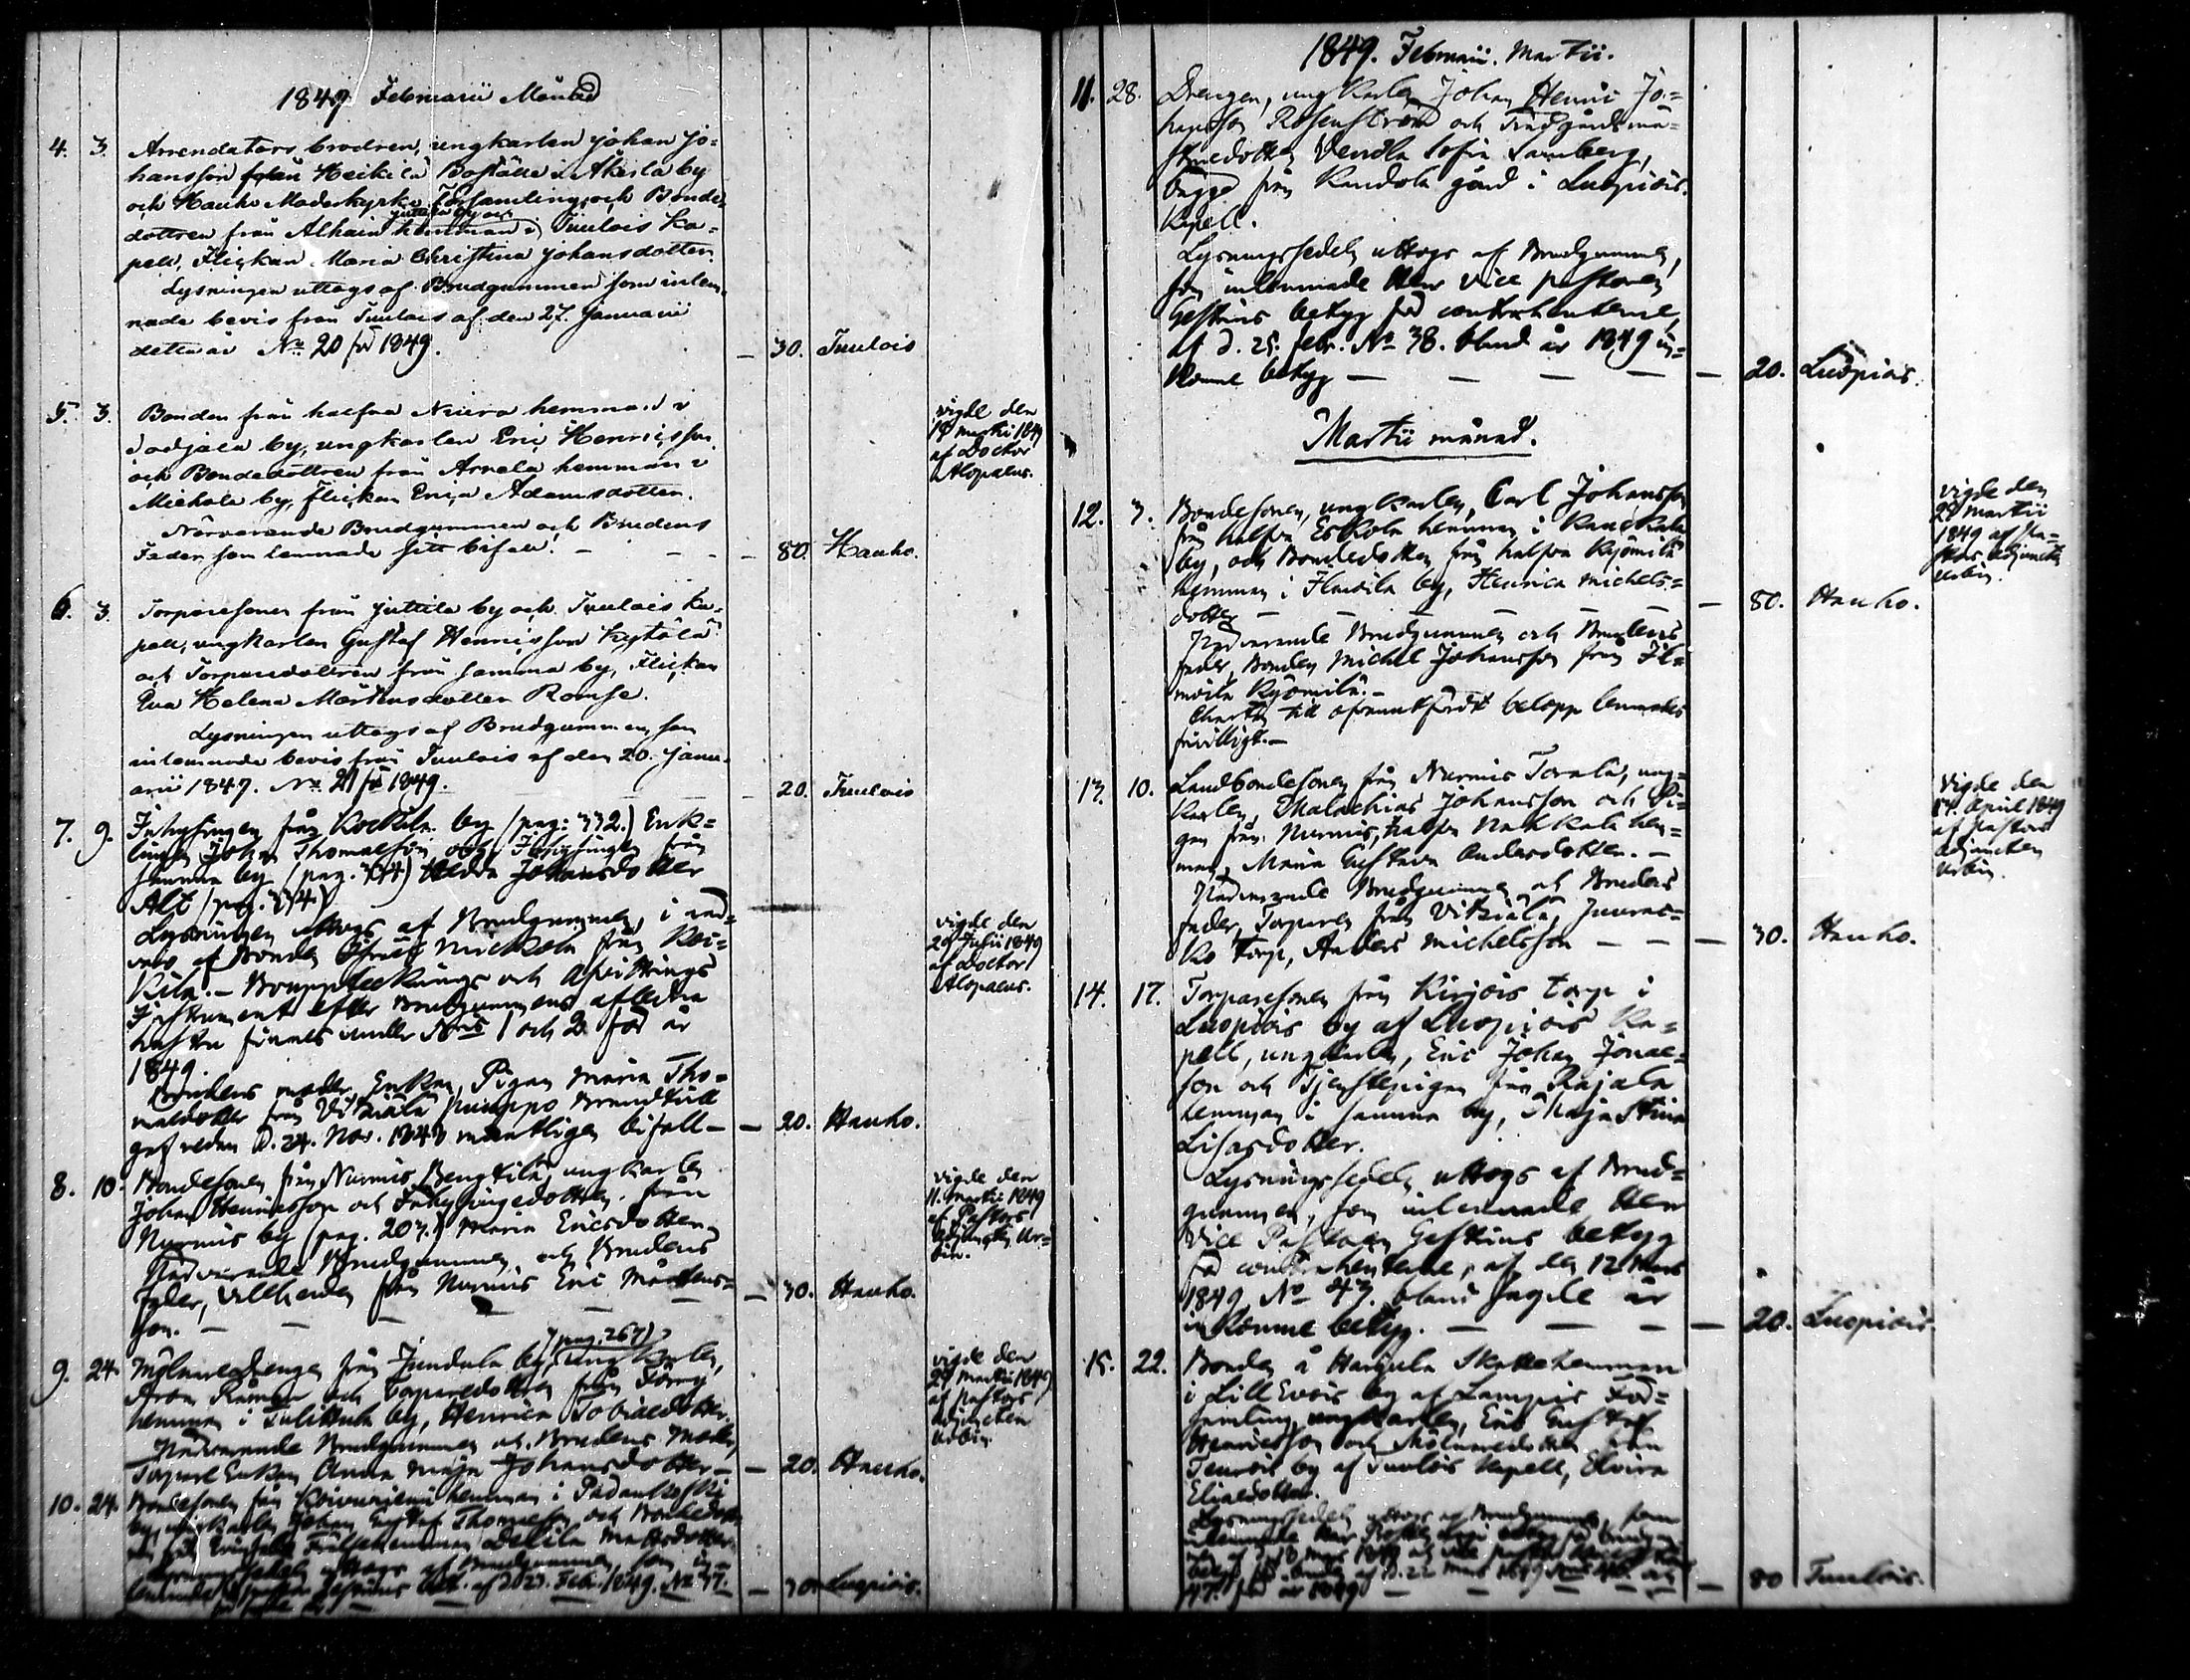 1849 Februarii Månad
4. 3. Arrendators brodren, ungkarlen Johan Jo-
hansson från Heikilä Boställe i Akisla by
och Hauho Moderkyrko Församling, och Bonde-
Juttila by och
dottren från Alhain hemman i Tuulois Ka-
pell, Flickan Maria Christina Johansdotter.
Lysningen uttogs af Brudgummen som inlem-
nade bevis från Tuulois af den 27. Januarii
detta år No 20 för 1849. — 30. Tuulois
5. 3. Bonden från halfva hemman i
by, ungkarlen Eric Henricsson
och Bondedottren från Arvela hemman i
Miehola by, flickan Erica Adamsdotter.
Närvarande Brudgummen och Brudens
Fader som lemnade sitt bifall. — 80. Hauho.
vigde den
18 martii 1849
af Doctor
Alopaeus.
6. 3. Torparesonen från Juttila by och Tuulois Ka-
pell, ungkarlen Gustaf Henricsson Kytölä
och Torparedottren från samma by, Flickan
Eva Helena Mårtensdotter Romse.
Lysningen uttogs af Brudgummen, som
inlemnade bevis från Tuulois af den 20. Janu-
arii 1849. No 21 för 1849. 20. Tuulois
7. 9. Inhysingen från Kockila by (pag: 332.) Enk-
lingen Johan Thomasson och Inhysingen från
samma by (pag. 334) Hedda Johansdotter
Alt (pag. 334)
Lysningen uttogs af Brudgummen, i när-
varo af Bonden Michelsson från Koc-
kila. — Bouppteknings och Afvittrings
Instrument efter Brudgummens aflidna
hustru finnes under Nris 1 och 2 för år
1849.
Brudens moder Enkan, Pigan Maria Tho-
masdotter från Vitsiälä Pumppo
gaf redan d. 24. Nov. 1848 muntligen bifall — — 20. Hauho.
vigde den
29 Julii 1849
af Doctor
Alopaeus.
8. 10. Bondesonen från Nurmis Bengtilä, ungkarlen
Johan Henricsson och Inhysingedottren från
Nurmis by (pag. 203.) Maria Ericsdotter.
Närvarande Brudgummen och Brudens
fader, från Nurmis Eric Mårtens-
son. — — — 30. Hauho.
vigde den
11. Martii 1849
af Pastors
Adjuncten Ur-
bin.
(pag. 267)
9. 24. Mölnaredrengen från Jundula by, ungkarlen,
Aron och Torparedottren från
hemman i Tulittula by, Henrica Tobiasdotter.
Närvarande Brudgummen och Brudens Moder,
Torpare Enkan Anna Maja Johansdotter — — 20. Hauho.
vigde den
29 Martii 1849
af Pastors
Adjuncten
Urbin.
10. 24. Bondesonen från Koivuniemi hemman i Padankoski
by, ungkarlen Johan Gustaf Thomasson och Bondedott-
Frälsehemman Delila Mattsdotter.
Lysningssedeln uttogs af Brudgummen, som in-
lemnade Pastor Gestrins bet. af d. 23. Febr. 1849. No 37. — 30. Luopiois.
1849. Februarii. Martii.
11. 28. Drengen, ungkarlen Johan Henric Jo-
hansson Rosenström och Trädgårdsmä-
staredottren Vendla Sofia Lamberg,
begge från Kandola gård i Luopiois
Kapell.
Lysningssedeln uttogs af Brudgummen,
som inlemnade Herr Vice Pastoren
Gestrins betyg för contrahenterne,
af d. 25. Febr. No 38. bland år 1849 in-
komne betyg — — — — — 20. Luopiois.
Martii månad.
12. 3. Bondesonen, ungkarlen, Carl Johansson
från halfva Eskola hemman i
by, och Bondedottren från halfva Kyömilä
hemman i Ilmoila by, Henrica Michels-
dotter — — — — — 80. Hauho.
Närvarande Brudgummen och Brudens
fader, Bonden Michel Johansson från Il-
moila Kyömilä. —
Charta till ofvanutfördt belopp lemnades
frivilligt. —
vigde den
29 Martii
1849 af Pa-
stors Adjuncten
Urbin.
13. 10. Landbondesonen från Nurmis Torala, ung-
karlen, Malachias Johansson och Pi-
gan från Nurmis, halfva Nahkala hem-
man, Maria Gustava Andersdotter. —
Närvarande Brudgummen och Brudens
fader, Torparen från Vitsiälä,
ko torp, Anders Michelsson — — — 30. Hauho.
Vigde den
14. April 1849
af Pastors
Adjuncten
Urbin.
14. 17. Torparesonen från Kirjois torp i
Luopiois by af Luopiois Ka-
pell, ungkarlen, Eric Johan Jonae-
son och Tjenstepigan från Rajala
hemman i samma by, Maja Stina
Lisasdotter.
Lysningssedeln uttogs af Brud-
gummen, som inlemnade Herr
Vice Pastoren Gestrins betyg
för contrahenterne, af den 12 Mars
1849, No 43. bland sagde år
inkomne betyg. — — — — 20. Luopiois.
15. 22. Bonden å Harjula Skattehemman
i Lill Evois by af Lampis För-
samling, ungkarlen, Eric Gustaf
Henricsson och Mölnaredottren från
by af Tuulois Kapell, Elvira
Eliaedotter.
Lysningssedeln uttogs af Brudgummen, som
inlemnade Herr betyg för Brudgum-
men af d. 18 Mars 1849 och Vice Pastor
betyg för bruden af d. 22 Mars 1849 Nris 46. och
47. för år 1849 — — — — 80 Tuulois.